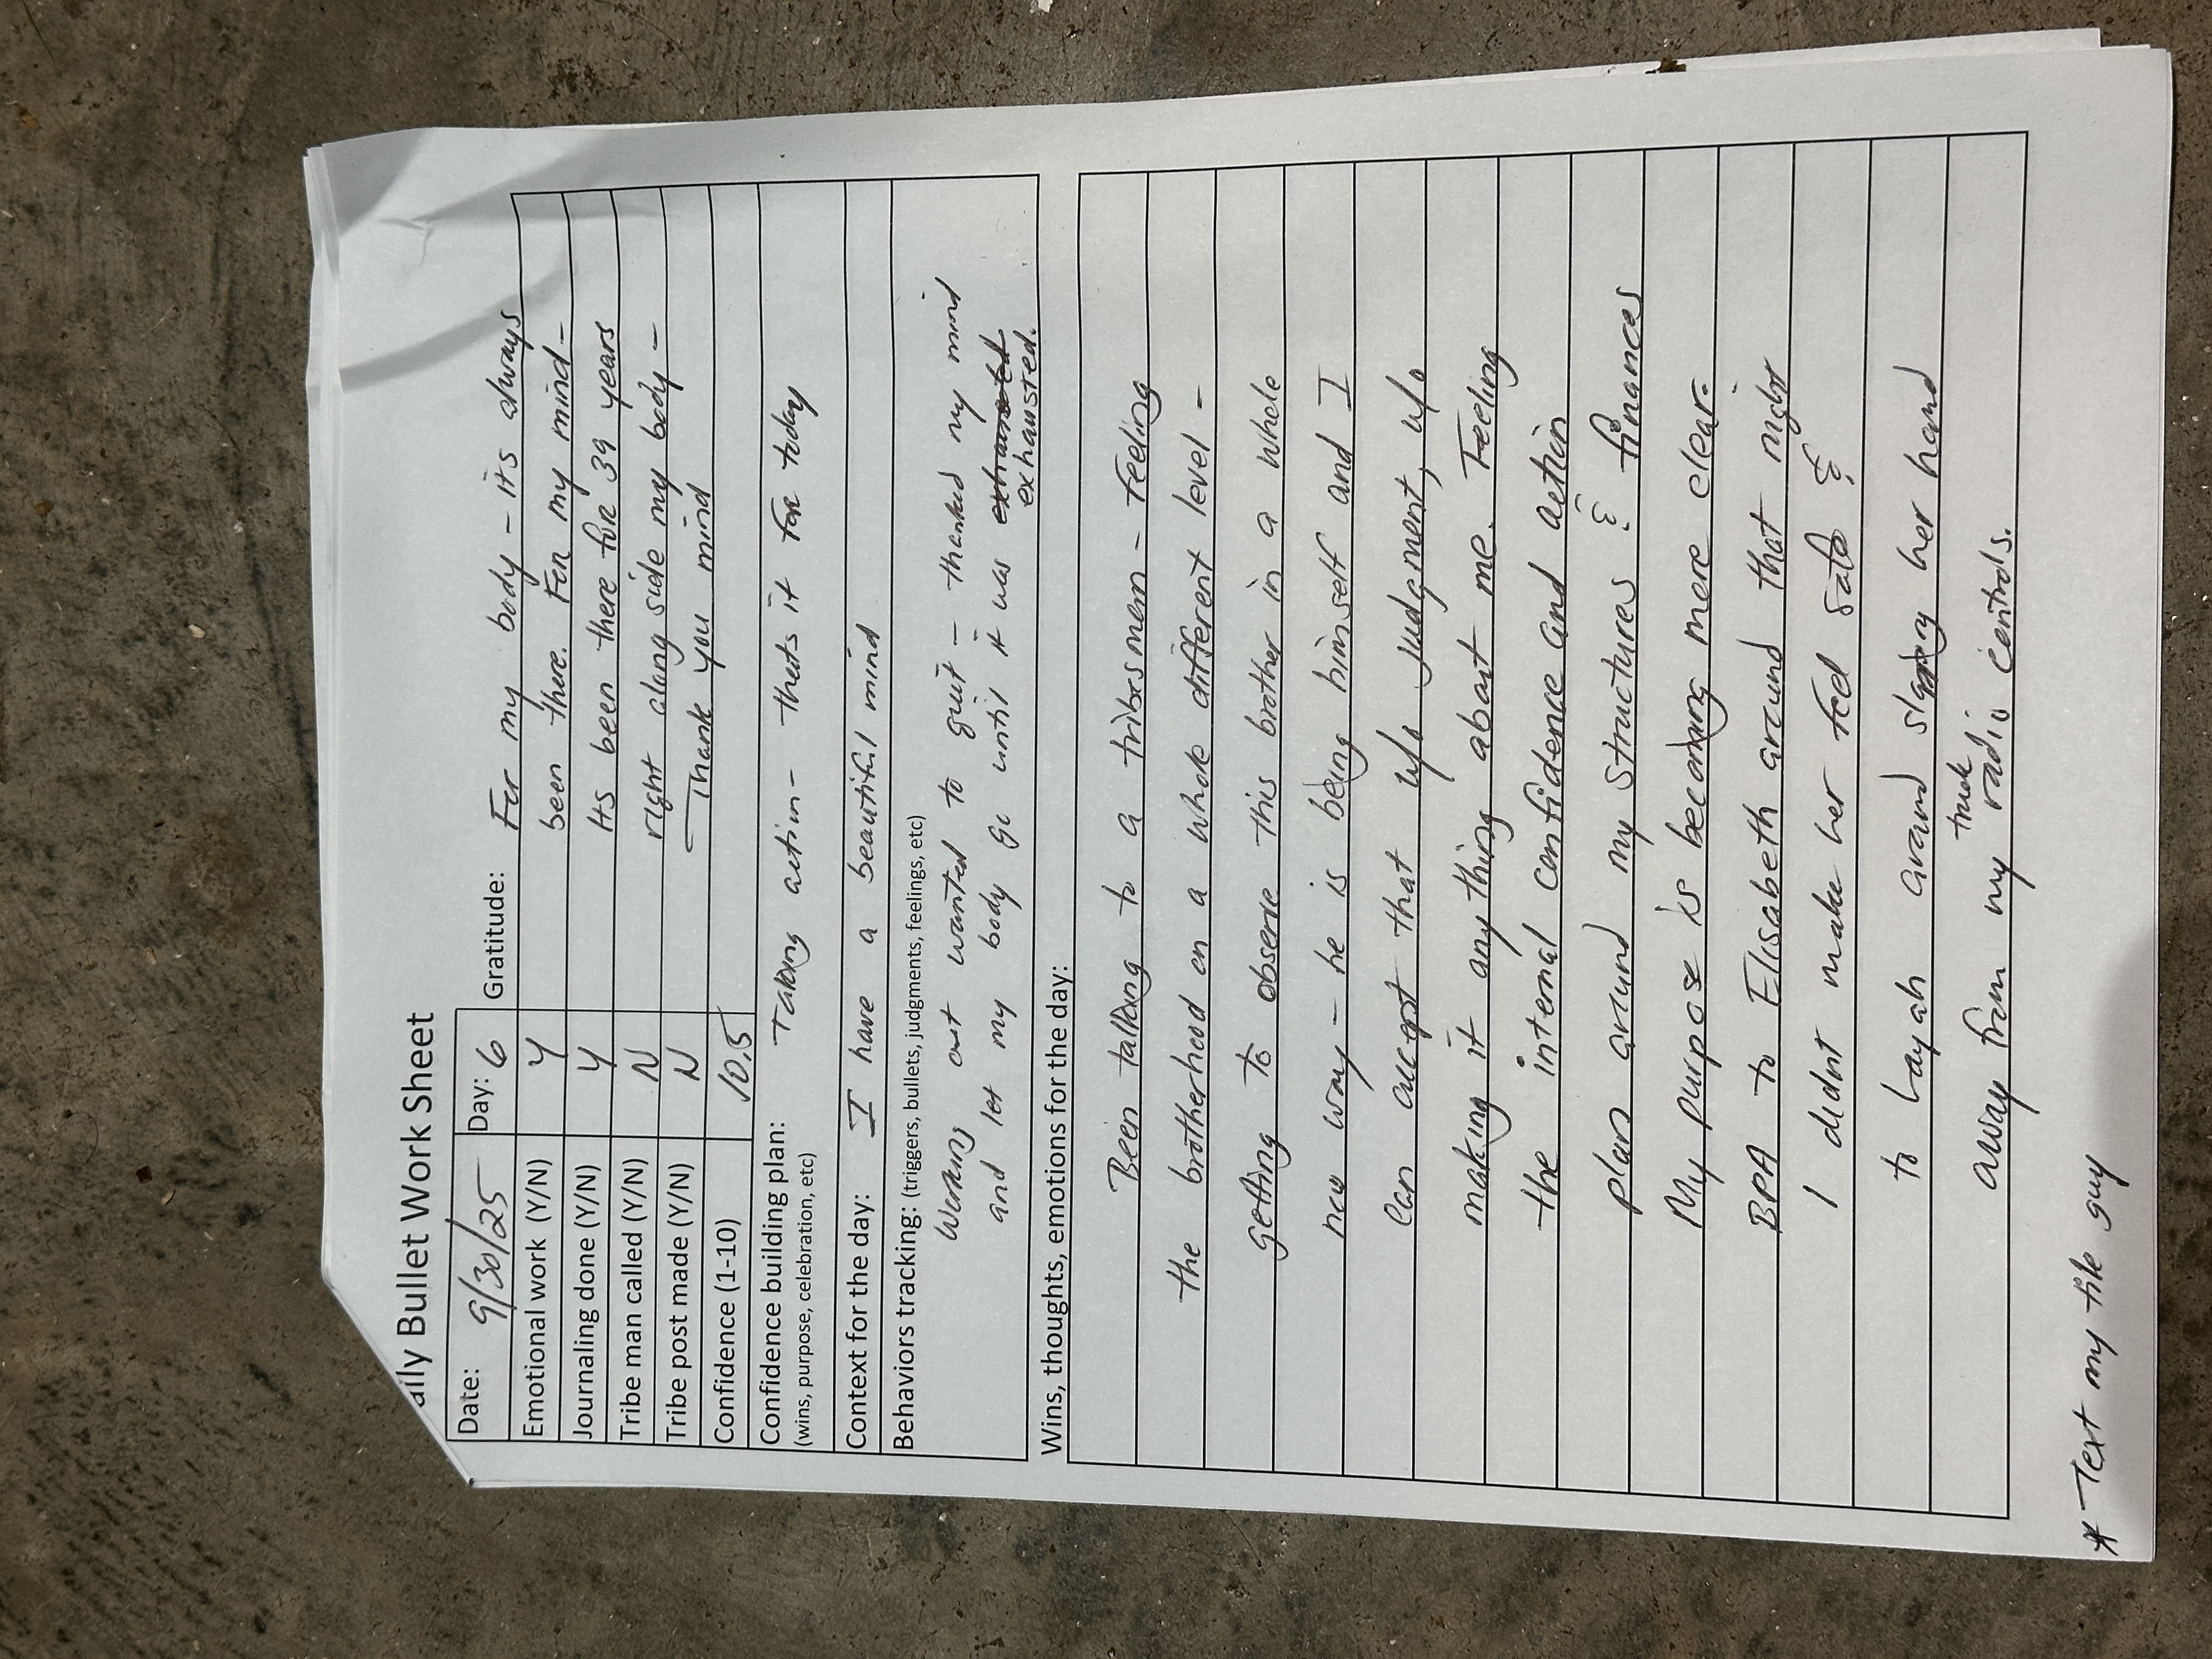 aily Bullet Work Sheet
Date: 9/30/25 Day: 6 Gratitude: For my body - its always
Emotional work (Y/N) Y been there. For my mind -
Journaling done (Y/N) Y Its been there for 39 years
Tribe man called (Y/N) N right along side my body -
Tribe post made (Y/N) N Thank you mind
Confidence (1-10) 10.5
Confidence building plan: Taking action - thats it for today
(wins, purpose, celebration, etc)
Context for the day: I have a beautiful mind
Behaviors tracking: (triggers, bullets, judgments, feelings, etc)
Working out wanted to quit - thanked my mind
and let my body go until it was
exhausted.
Wins, thoughts, emotions for the day:
Been talking to a tribesmen - feeling
the brotherhood on a whole different level -
getting to observe this brother in a whole
new way - he is being himself and I
can accept that w/o judgment, w/o
making it anything about me. Feeling
the internal confidence and action
plan around my structures & finances
My purpose is becoming more clear.
BPA to Elisabeth around that might
I didnt make her feel safe &
to Layah around slapping her hand
away from my truck radio controls.
* Text my tile guy